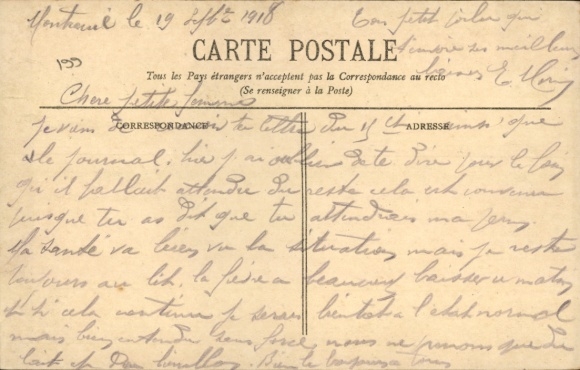 Montreuil le 19 7bre 1918
Ton petit   que
t'envoie ses meilleurs
baisers E. Morin
199
CARTE POSTALE
Tous les Pays étrangers n'acceptent pas la Correspondance au recto
(Se renseigner à la Poste)
CORRESPONDANCE
ADRESSE
Chère petite femme
Je viens de   ta lettre du 15   que
le journal, hier j'ai oublié de te dire pour le
qu'il fallait attendre du reste cela est convenu
puisque tu as dit que tu attendrais ma
Ma santé va bien vu la situation mais je reste
toujours au lit, la fièvre a beaucoup baissée ce matin
et si cela continue je serais bientôt à l'état normal
mais bien entendu sans force, nous ne prenons que du
lait et du bouillon. Bien le bonjour à tous